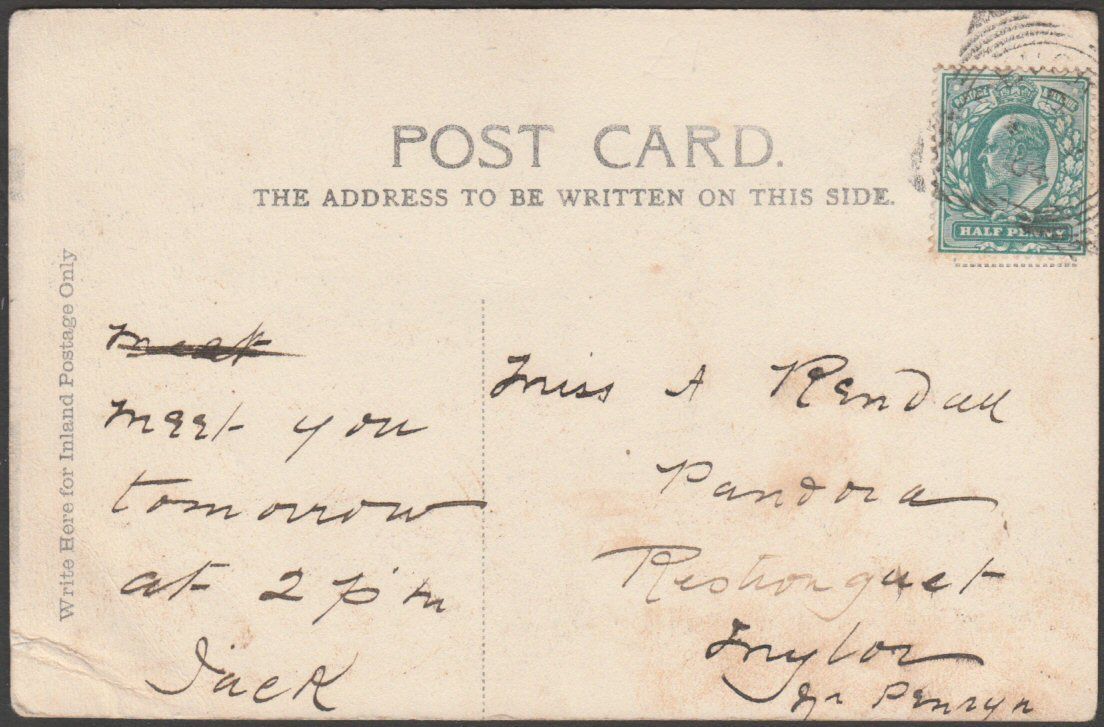 POST CARD.
THE ADDRESS TO BE WRITTEN ON THIS SIDE.
POSTAGE & REVENUE
HALF PENNY
Write Here for Inland Postage Only
meet you
tomorrow
at 2 p m
Jack
Miss A Rendall
Pandora
Restronguet
Mylor
Penryn